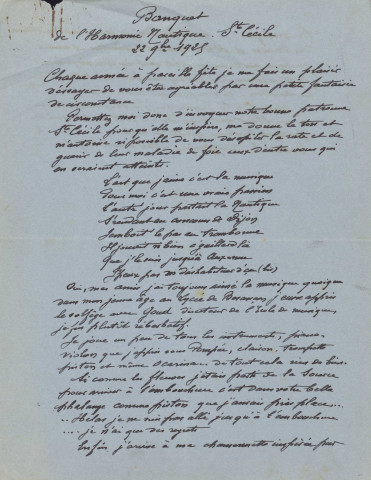 Banquet
de l'Harmonie Nautique. Ste Cécile
22 9bre 1925
Chaque année à pareille fête je me fais un plaisir
d'essayer de vous être agréable par une petite fantaisie
de circonstance
Permettez moi donc d'invoquer notre bonne patronne
Ste Cécile pour qu'elle m'inspire, me donne le
m'autorise si possible de vous désopiler la rate et de
guérir de leur maladie de foie ceux d'entre vous qui
en seraient atteints.
L'art que j'aime c'est la musique
Pour moi c'est une vraie passion
L'autre jour partant la Nautique
S'rendant au concours de Dijon
Jambois le pas au trombonne
Il jouait si bien c'gaillard là
Que j'le suis jusqu'à Auxonne
(bis)
Oui, mes amis j'ai toujours aimé la musique quoique
dans mon jeune âge au Lycée de Besançon, j'eusse appris
le solfège avec directeur de l'école de musique,
je fus plutôt rébarbatif.
Je joue un peu de tous les instruments, piano,
violon que j'appris sous l'empire, clairon, trompette
piston et même ocarina... de tout cela rien de bien.
Si comme le fleuve j'étais parti de la Source
pour arriver à l'embouchure c'est dans votre belle
phalange comme piston que j'aurais pris place...
.. Hélas je ne suis pas allé jusqu'à l'embouchure
.... je n'ai que des regrets
Enfin j'arrive à ma chansonnette inspirée par